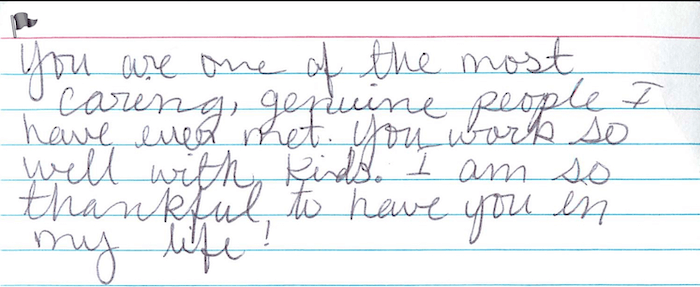 You are one of the most
caring, genuine people I
have ever met. You work so
well with kids. I am so
thankful to have you in
my life!